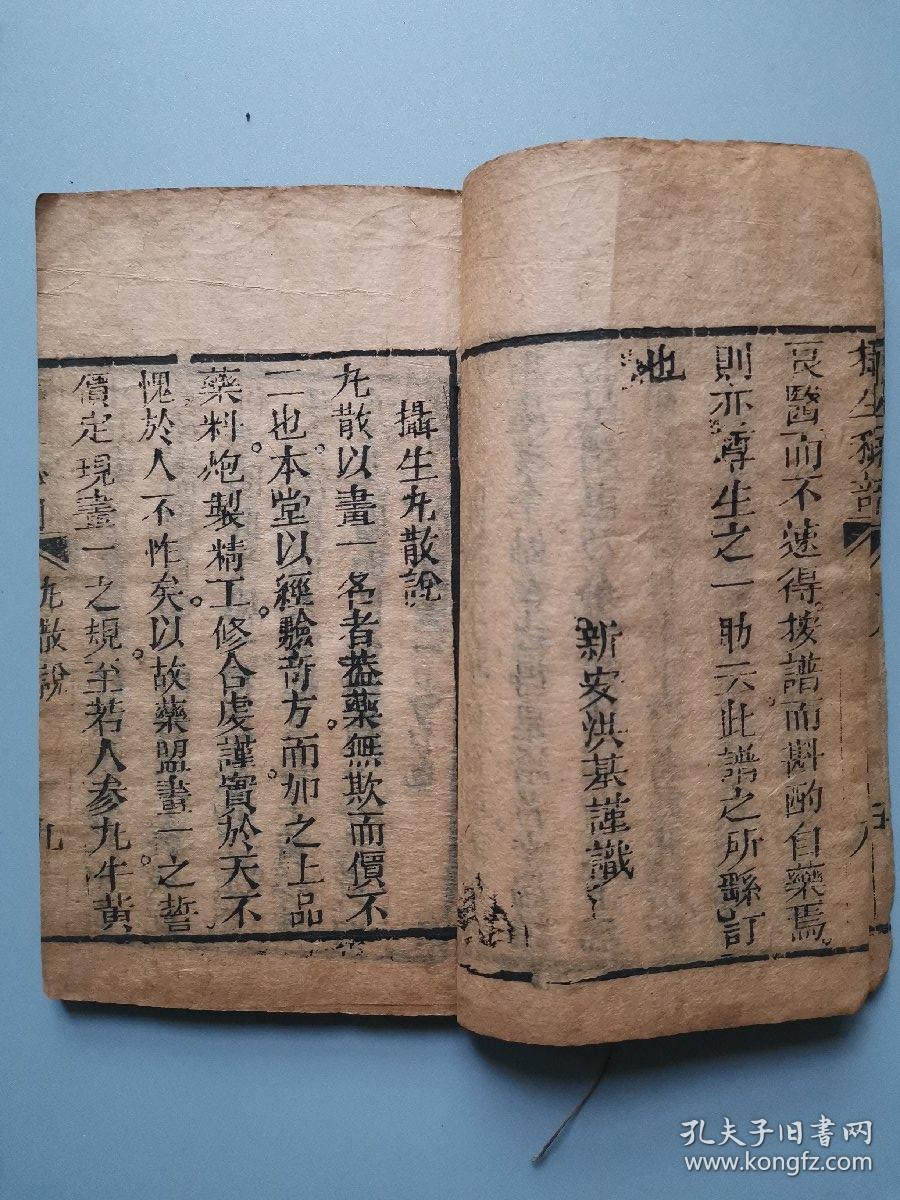 攝生秘剖
良醫而不速得按譜而斟酌自藥焉。
則亦尊生之一助云此譜之所繇訂
也
新安洪基謹識
攝生丸散說
丸散以畫一名者葢藥無欺而價不
二也。本堂以經驗奇方。而加之上品
藥料。炮製精工。修合虔謹。實於天不
愧於人不怍矣。以故藥盟畫一之誓。
價定現畫一之規至若人參丸牛黃
丸散說
九
孔夫子旧书网
www.kongfz.com